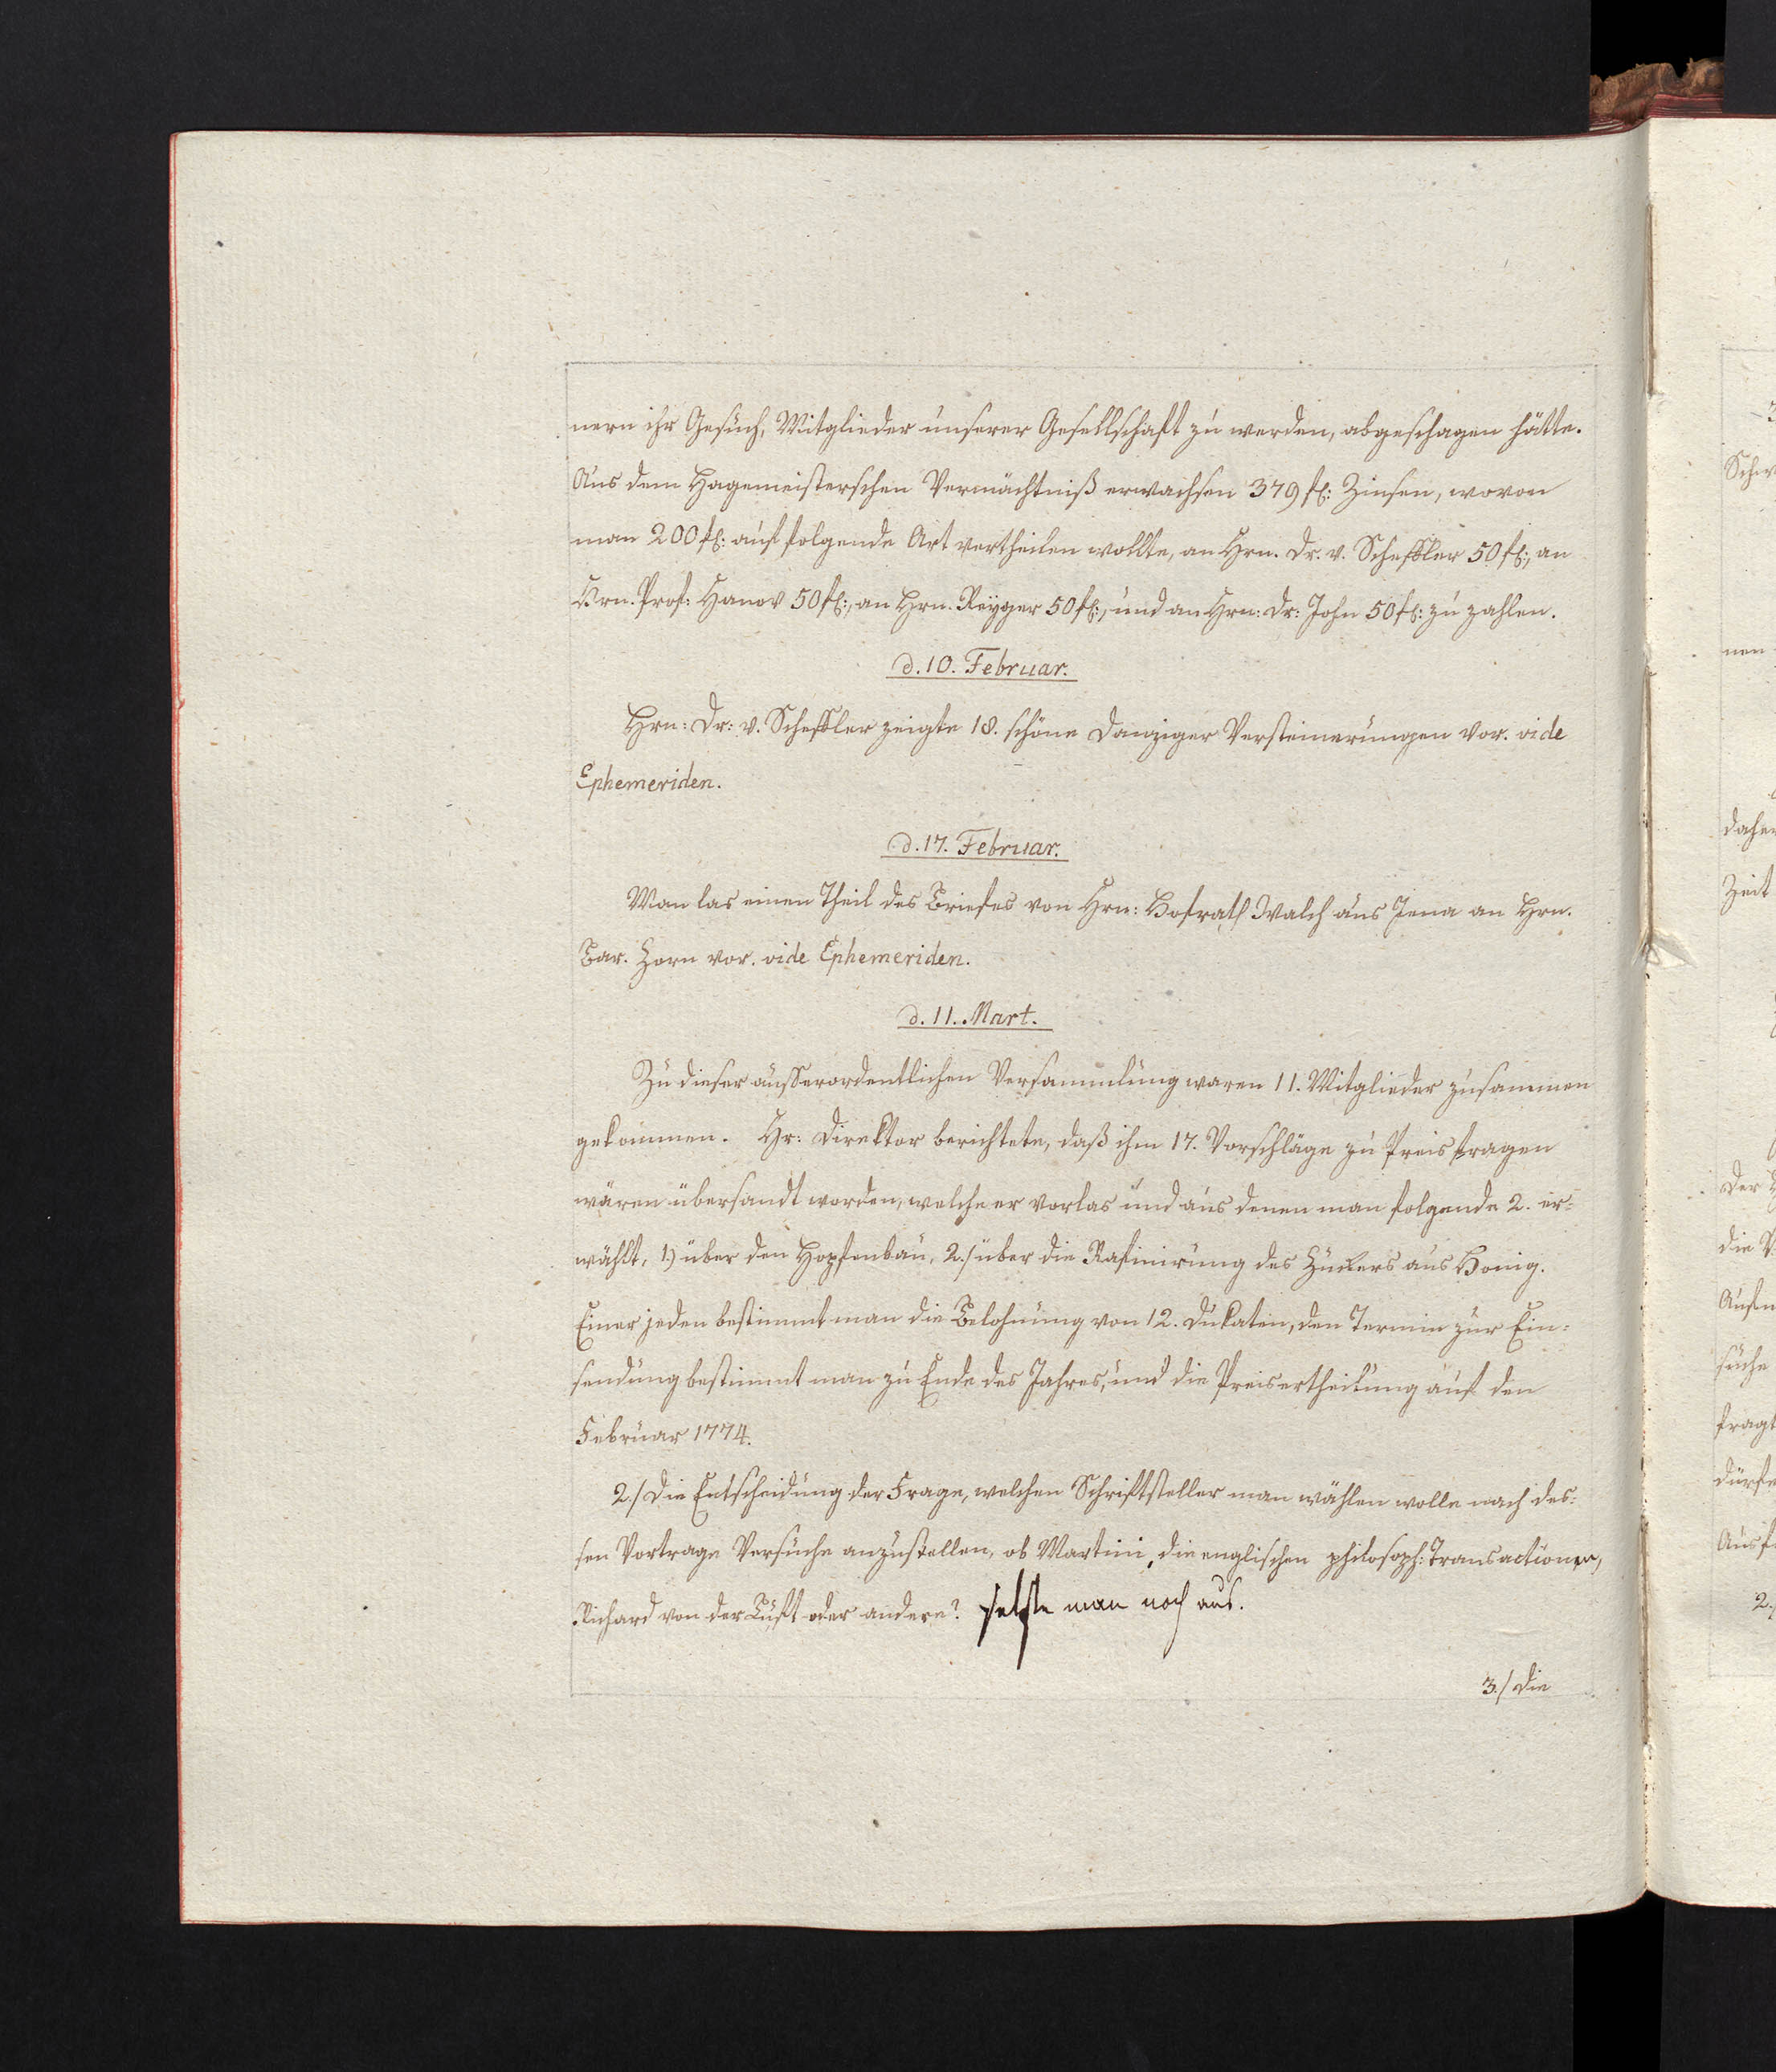 nern ihr Gesuch, Mitglieder unserer Gesellschaft zu werden, abgeschagen hätte.
Aus dem Hagemeisterschen Vermächtniß erwachsen 379 fl: Zinsen, wovon
man 200 fl: auf folgende Art vertheilen wollte, an Hrn. Dr. v. Scheffler 50 fl:, an
Hrn. Prof: Hanov 50 fl:, an Hrn. Reyger 50 fl:, und an Hrn: Dr: John 50 fl: zu zahlen.
d. 10. Februar.
Hrn: Dr: v. Scheffler zeigte 18. schöne Danziger Versteinerungen vor. vide
Ephemeriden.
d. 17. Februar.
Man las einen Theil des Briefes von Hrn: Hofrath Walch aus Jena an Hrn.
Bar. Zorn vor. vide Ephemeriden.
d. 11. Mart.
Zu dieser ausserordentlichen Versammlung waren 11. Mitglieder zusammen
gekommen. Hr: Direktor berichtete, daß ihm 17. Vorschläge zu Preisfragen
wären übersandt worden, welche er vorlas und aus denen man folgende 2. er=
wählt, 1.) über den Hopfenbau, 2./ über die Rafinirung des Zuckers aus Honig.
Einer jeden bestimmt man die Belohnung von 12. Dukaten, den Termin zur Ein=
sendung bestimmt man zu Ende des Jahres, und die Preisertheilung auf den
Februar 1774.
2./ Die Entscheidung der Frage, welchen Schriftsteller man wählen wolle nach des=
sen Vortrage Versuche anzustellen, ob Martini, die englischen philosoph: Transactionen,
Richard von der Luft oder andere? setzte man noch aus.
3./ Die